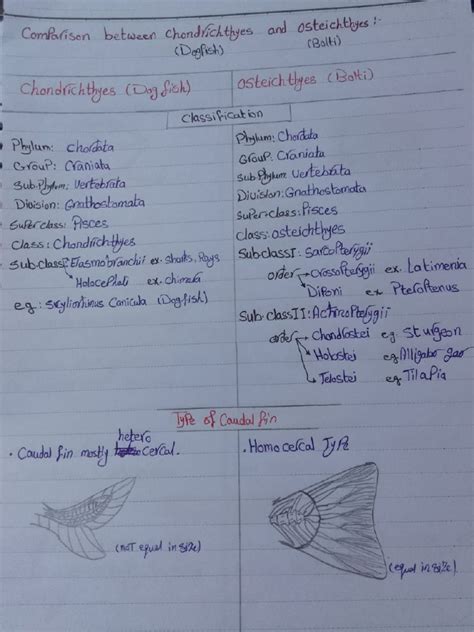 Comparison between Chondrichthyes and osteichthyes:-
(Dogfish) (Bolti)
Chondrichthyes (Dog fish)
Osteichthyes (Bolti)
Classification
Phylum: Chordata
Group: Craniata
Sub.Phylum: Vertebrata
Division: Gnathostomata
Superclass: Pisces
Class: Chondrichthyes
Sub.class: Elasmobranchii ex. sharks. Rays
Holocephali ex. chimera
e.g.: Skyliorhinus Canicula (Dogfish)
Phylum: Chordata
Group: Craniata
Sub Phylum: Vertebrata
Division: Gnathostomata
Superclass: Pisces
Class: osteichthyes
Subclass I: Sarcopterygii
order Crossopterygii ex. Latimenia
Dipnoi ex
Sub.class II: Actinopterygii
order Chondrostei eg Sturgeon
Holostei eg Alligator gar
Telostei eg Tilapia
Type of Caudal fin
hetero
• Caudal fin mostly cercal.
(not equal in size)
• Homocercal Type
(equal in size)